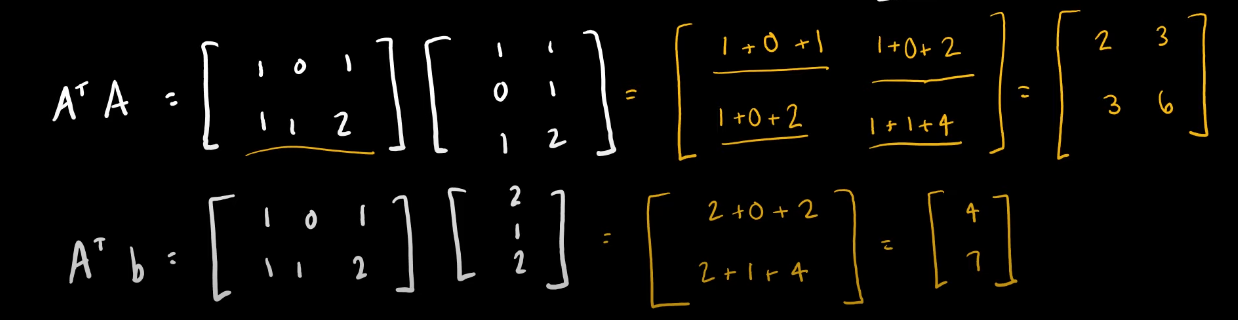 AᵀA = [1 0 1; 1 1 2] [1 1; 0 1; 1 2] = [1+0+1 1+0+2; 1+0+2 1+1+4] = [2 3; 3 6]
Aᵀb = [1 0 1; 1 1 2] [2; 1; 2] = [2+0+2; 2+1+4] = [4; 7]